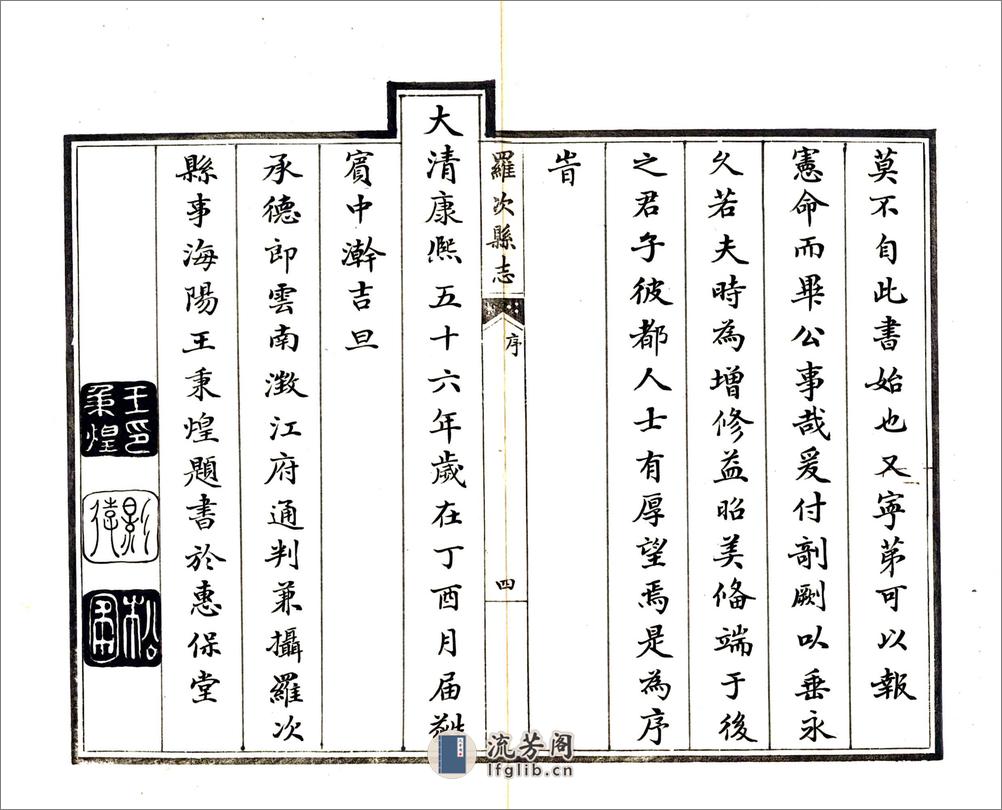 莫不自此書始也又寧苐可以報
憲命而畢公事哉爰付剞劂以垂永
久若夫時為增修益昭美俻端于後
之君子彼都人士有厚望焉是為序
旹
羅次縣志
序
四
大清康熙五十六年歲在丁酉月届蕤
賓中澣吉旦
承德郎雲南澂江府通判兼攝羅次
縣事海陽王秉煌題書於惠保堂
王秉煌印
流芳阁
lfglib.cn